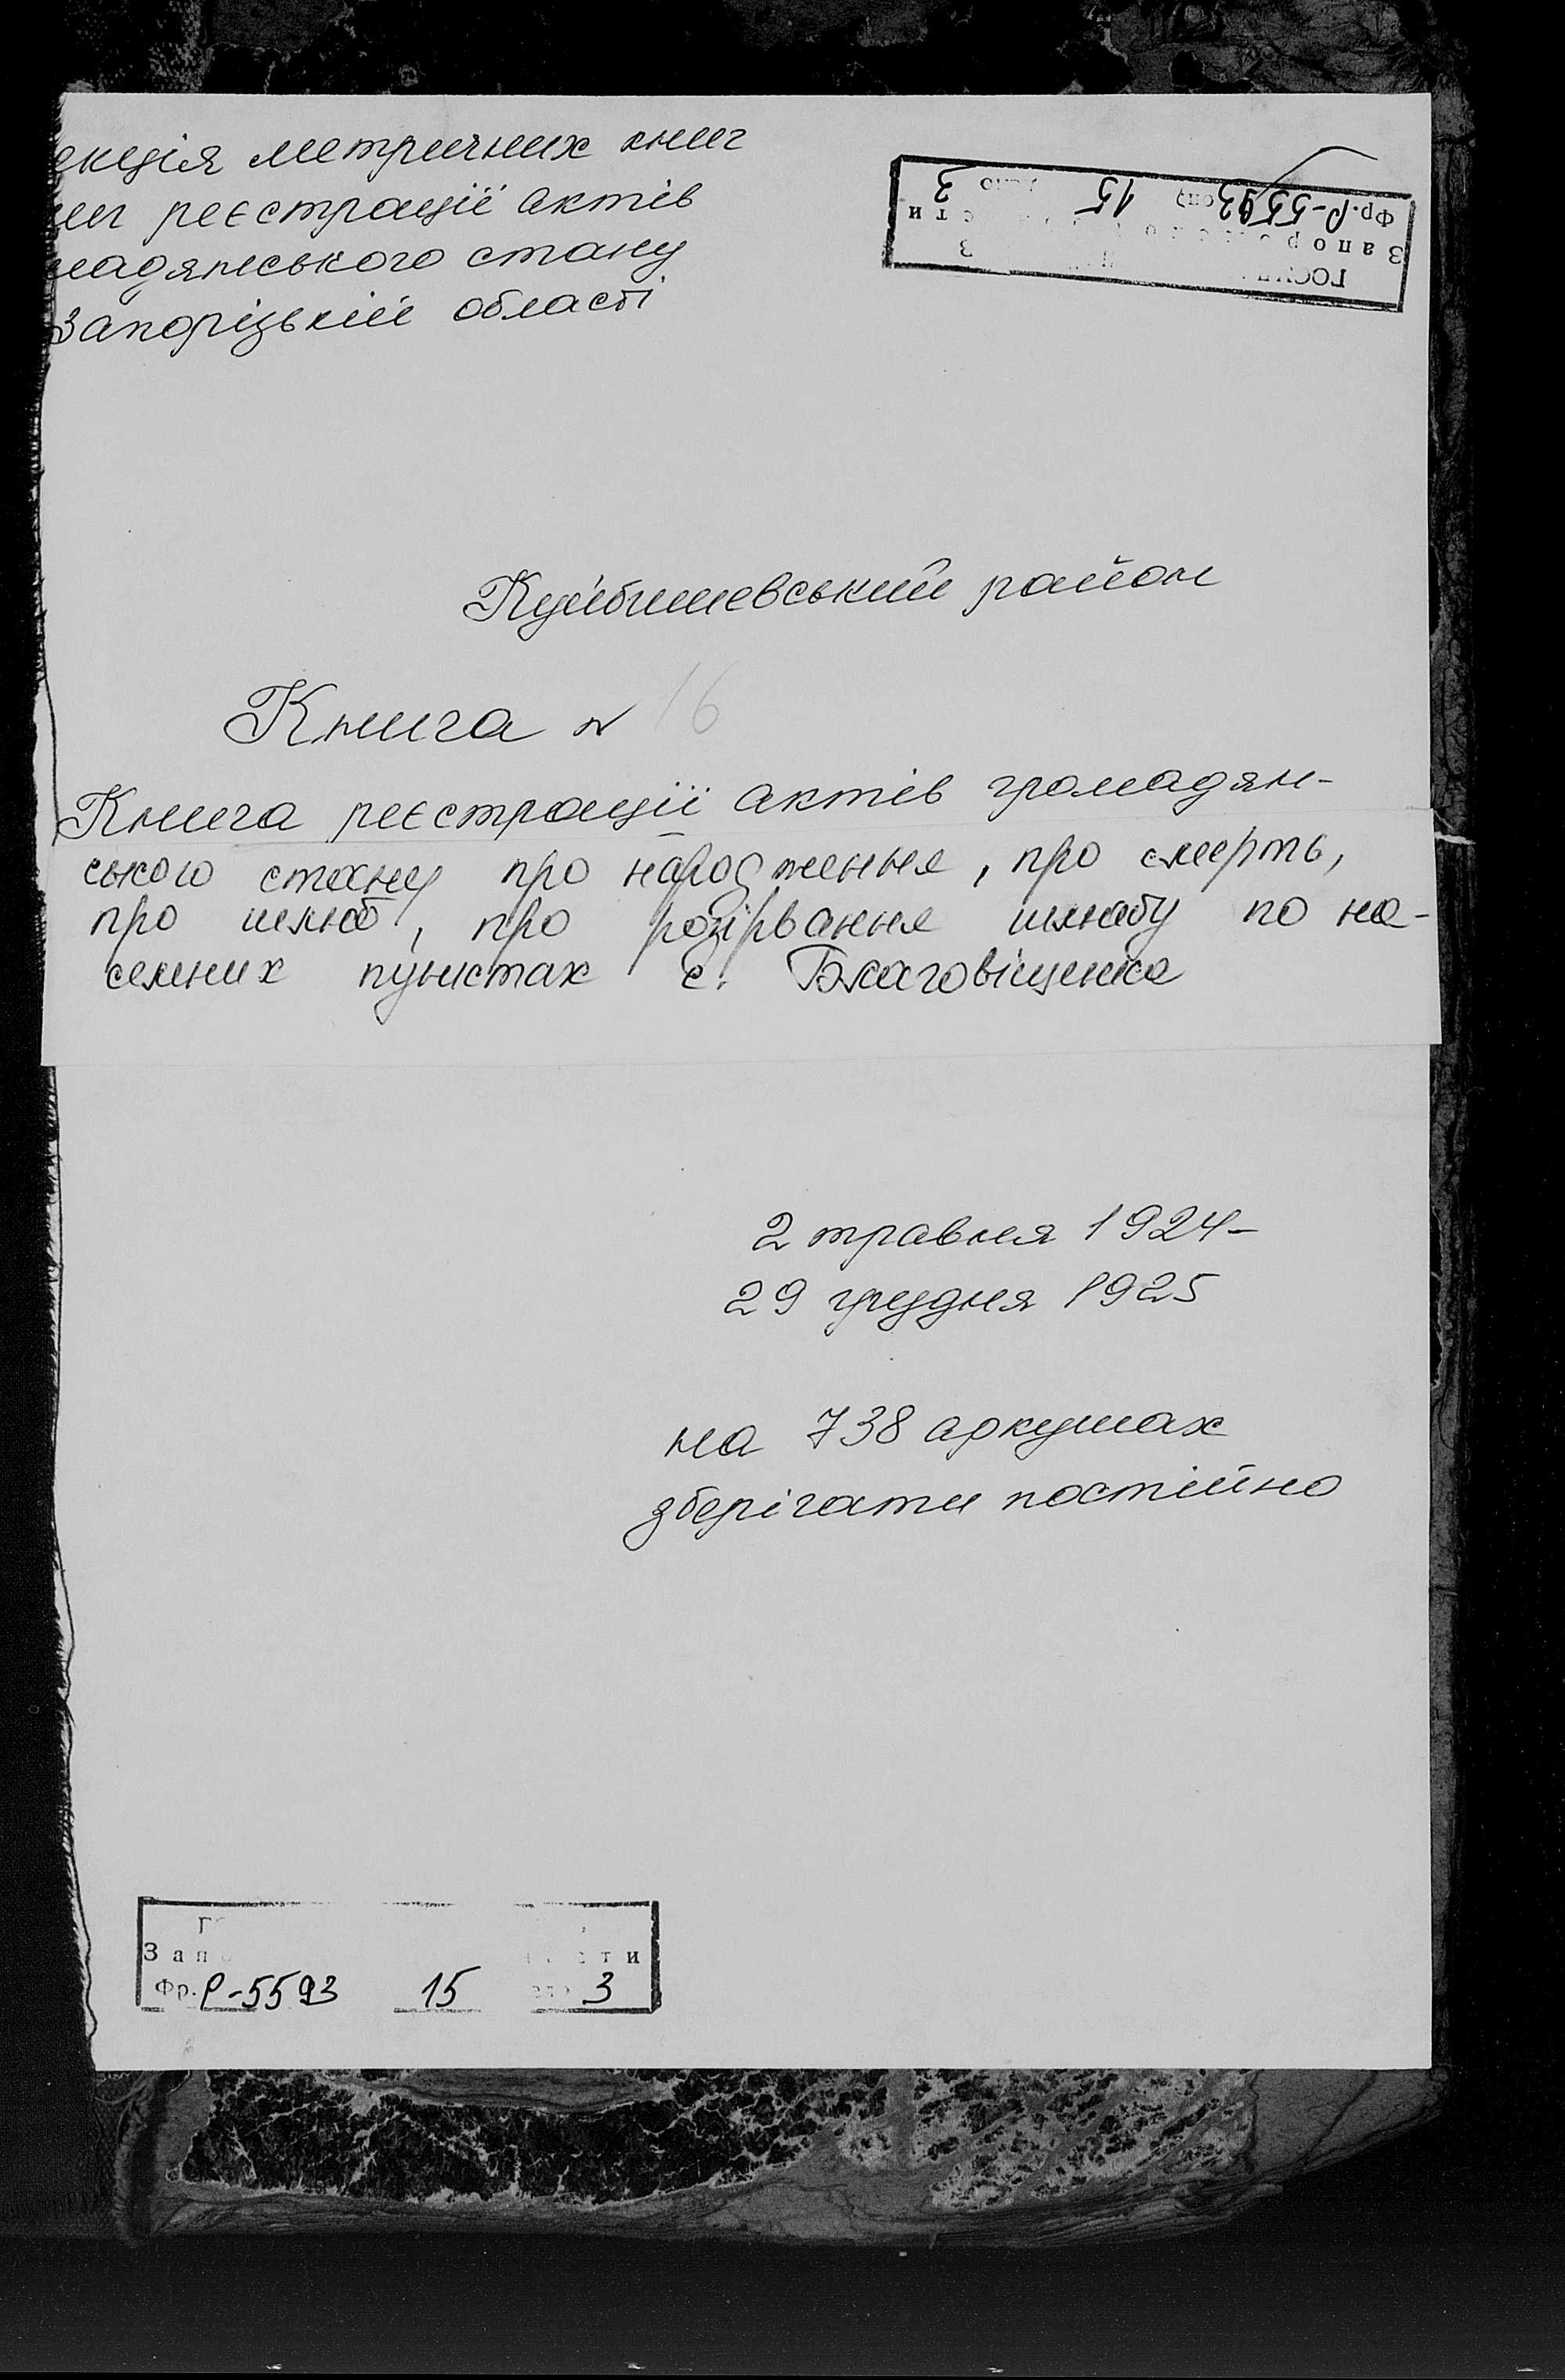 екція метричних книг
иг реєстрації актів
мадянського стану
Запорізькій області
Фр. Р-5593 15 3
Куйбишевський район
Книга № 16
Книга реєстрації актів громадян-
ського стану про народження, про смерть,
про шлюб, про розірвання шлюбу по на-
селних пунктах с. Благовіщенка
2 травня 1924-
29 грудня 1925
на 738 аркушах
зберігати постійно
Фр. Р-5593 15 3